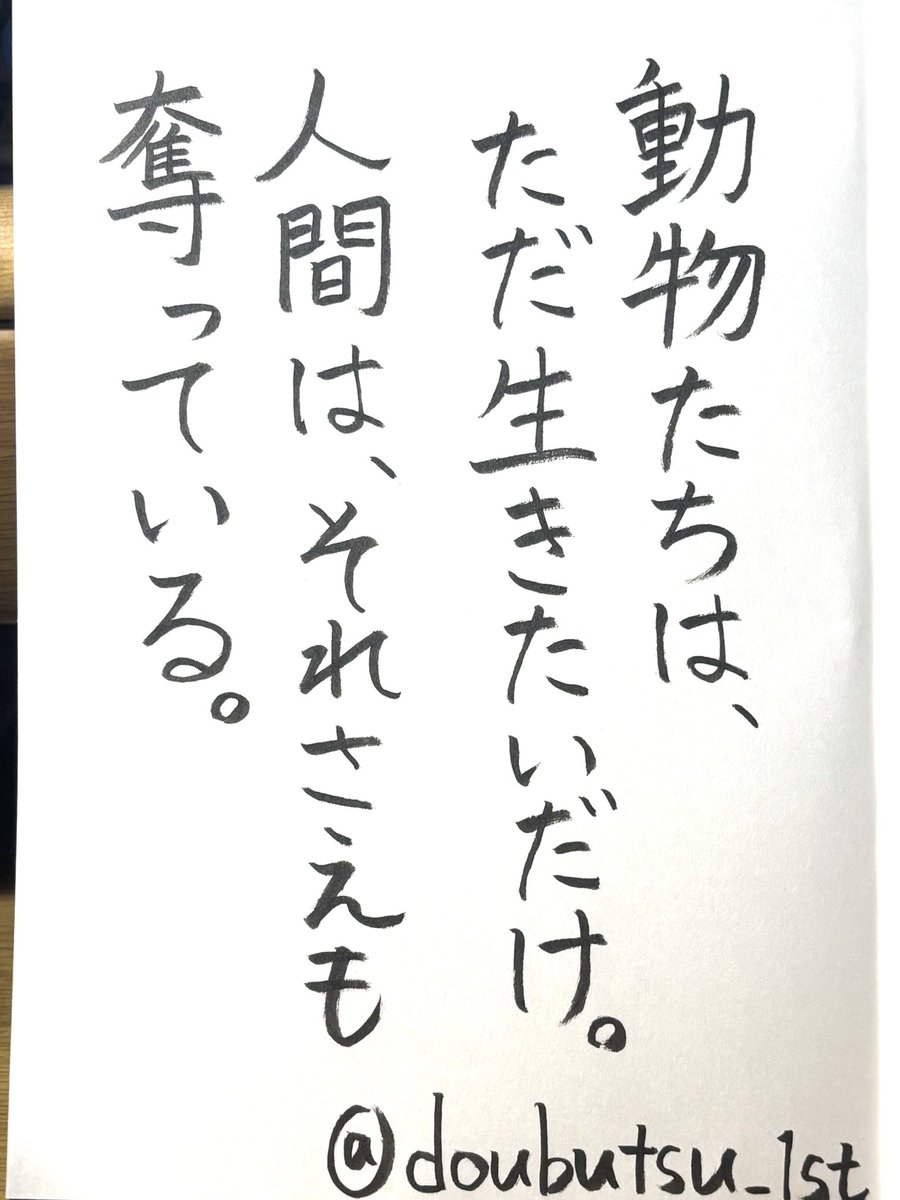 動物たちは、
ただ生きたいだけ。
人間は、それさえも
奪っている。
@doubutsu_1st